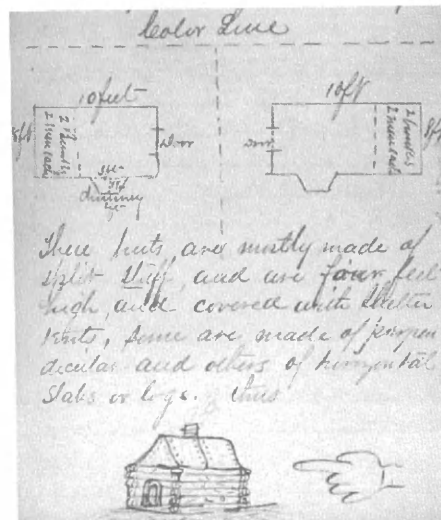 Color Line
10 feet
10 ft
8ft
2 Bunks
2 men each
Door
Door
2 bunks
2 men each
8ft
chimney
These huts are mostly made of
split stuff and are four feet
high, and covered with shelter
tents, some are made of perpen
dicular and others of horizontal
slabs or logs. thus